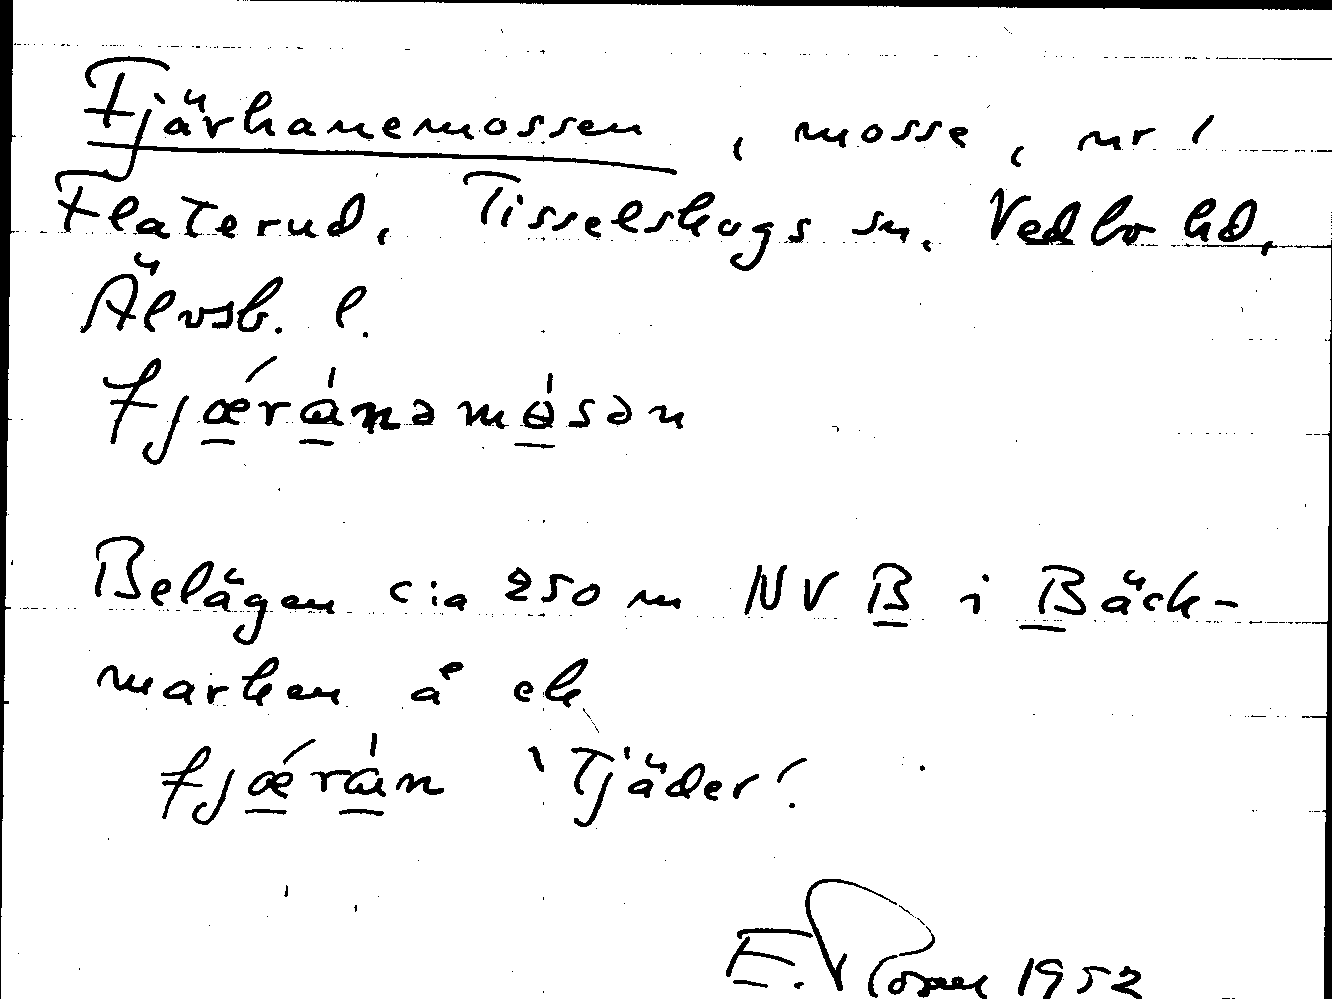 Fjärhanemossen, mosse, nr 1
Flaterud, Tisselskogs sn. Vedbo hd,
Älvsb. l.
fjǽ̲rɑ̲́nəmɑ̲́sən
Belägen c:a 250 m NV B i Bäck-
marken å ek
fjǽ̲rɑ̲́n 'Tjäder'.
E. Rosell 1952